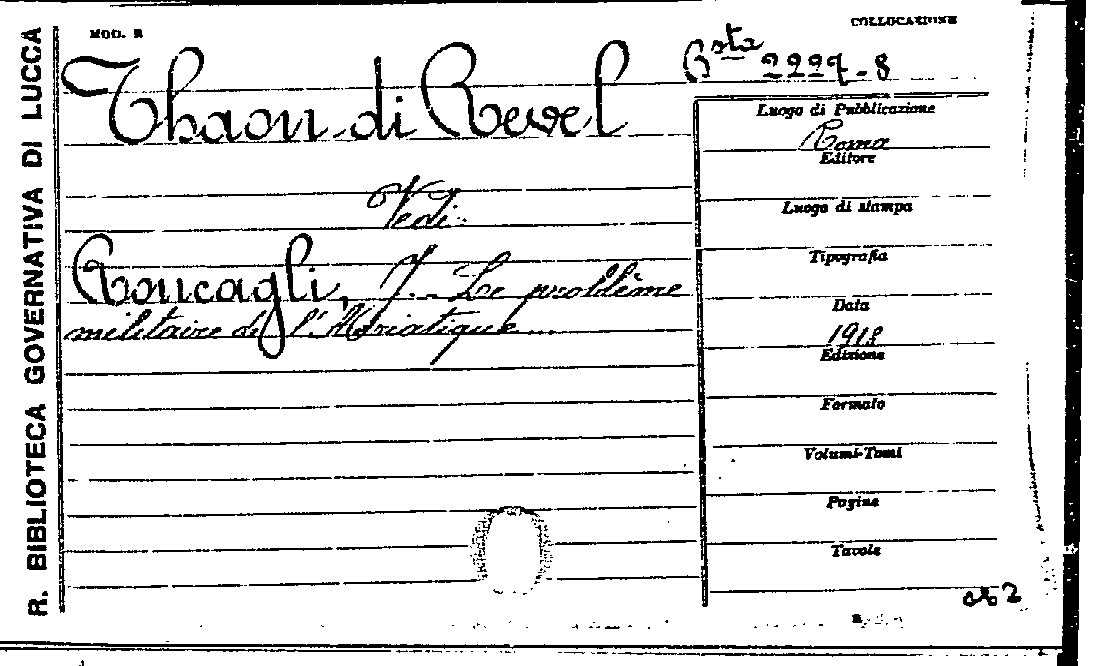 R. BIBLIOTECA GOVERNATIVA DI LUCCA
MOD. R
COLLOCAZIONE
Bsta 2227-8
Thaon di Revel
Vedi:
Roncagli, J. - Le problème
militaire de l'Adriatique...
Luogo di Pubblicazione
Roma
Editore
Luogo di stampa
Tipografia
Data
1918
Edizione
Formato
Volumi-Tomi
Pagine
Tavole